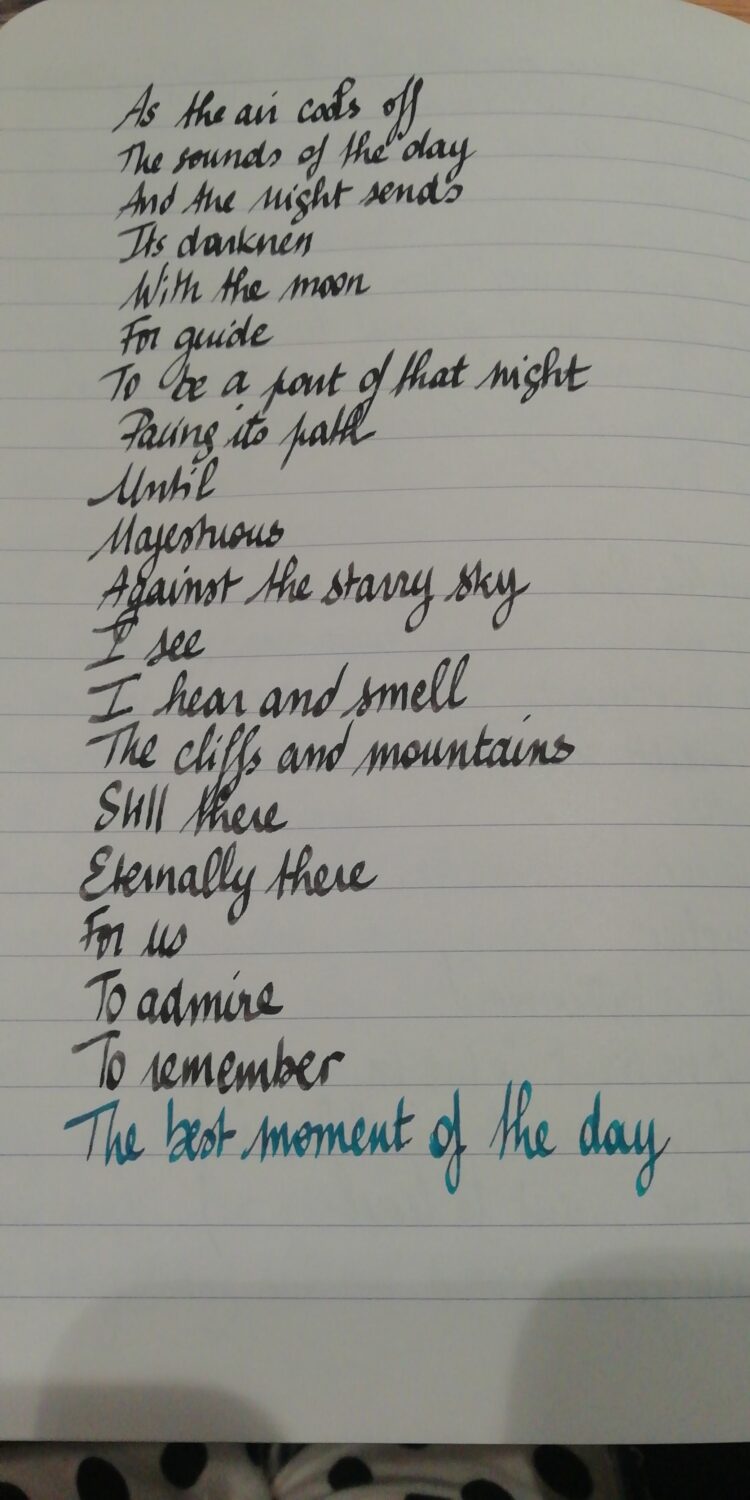 As the air cools off
The sounds of the day
And the night sends
Its darkness
With the moon
For guide
To be a part of that night
Pacing its path
Until
Majestuous
Against the starry sky
I see
I hear and smell
The cliffs and mountains
Still there
Eternally there
For us
To admire
To remember
The best moment of the day